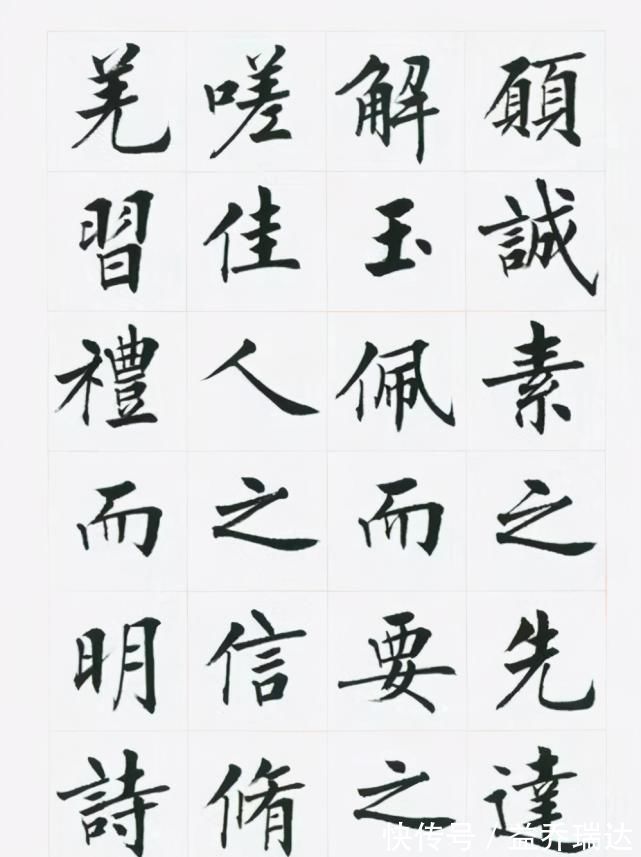 願誠素之先達
解玉佩而要之
嗟佳人之信脩
羌習禮而明詩
快传号/益乔瑞达